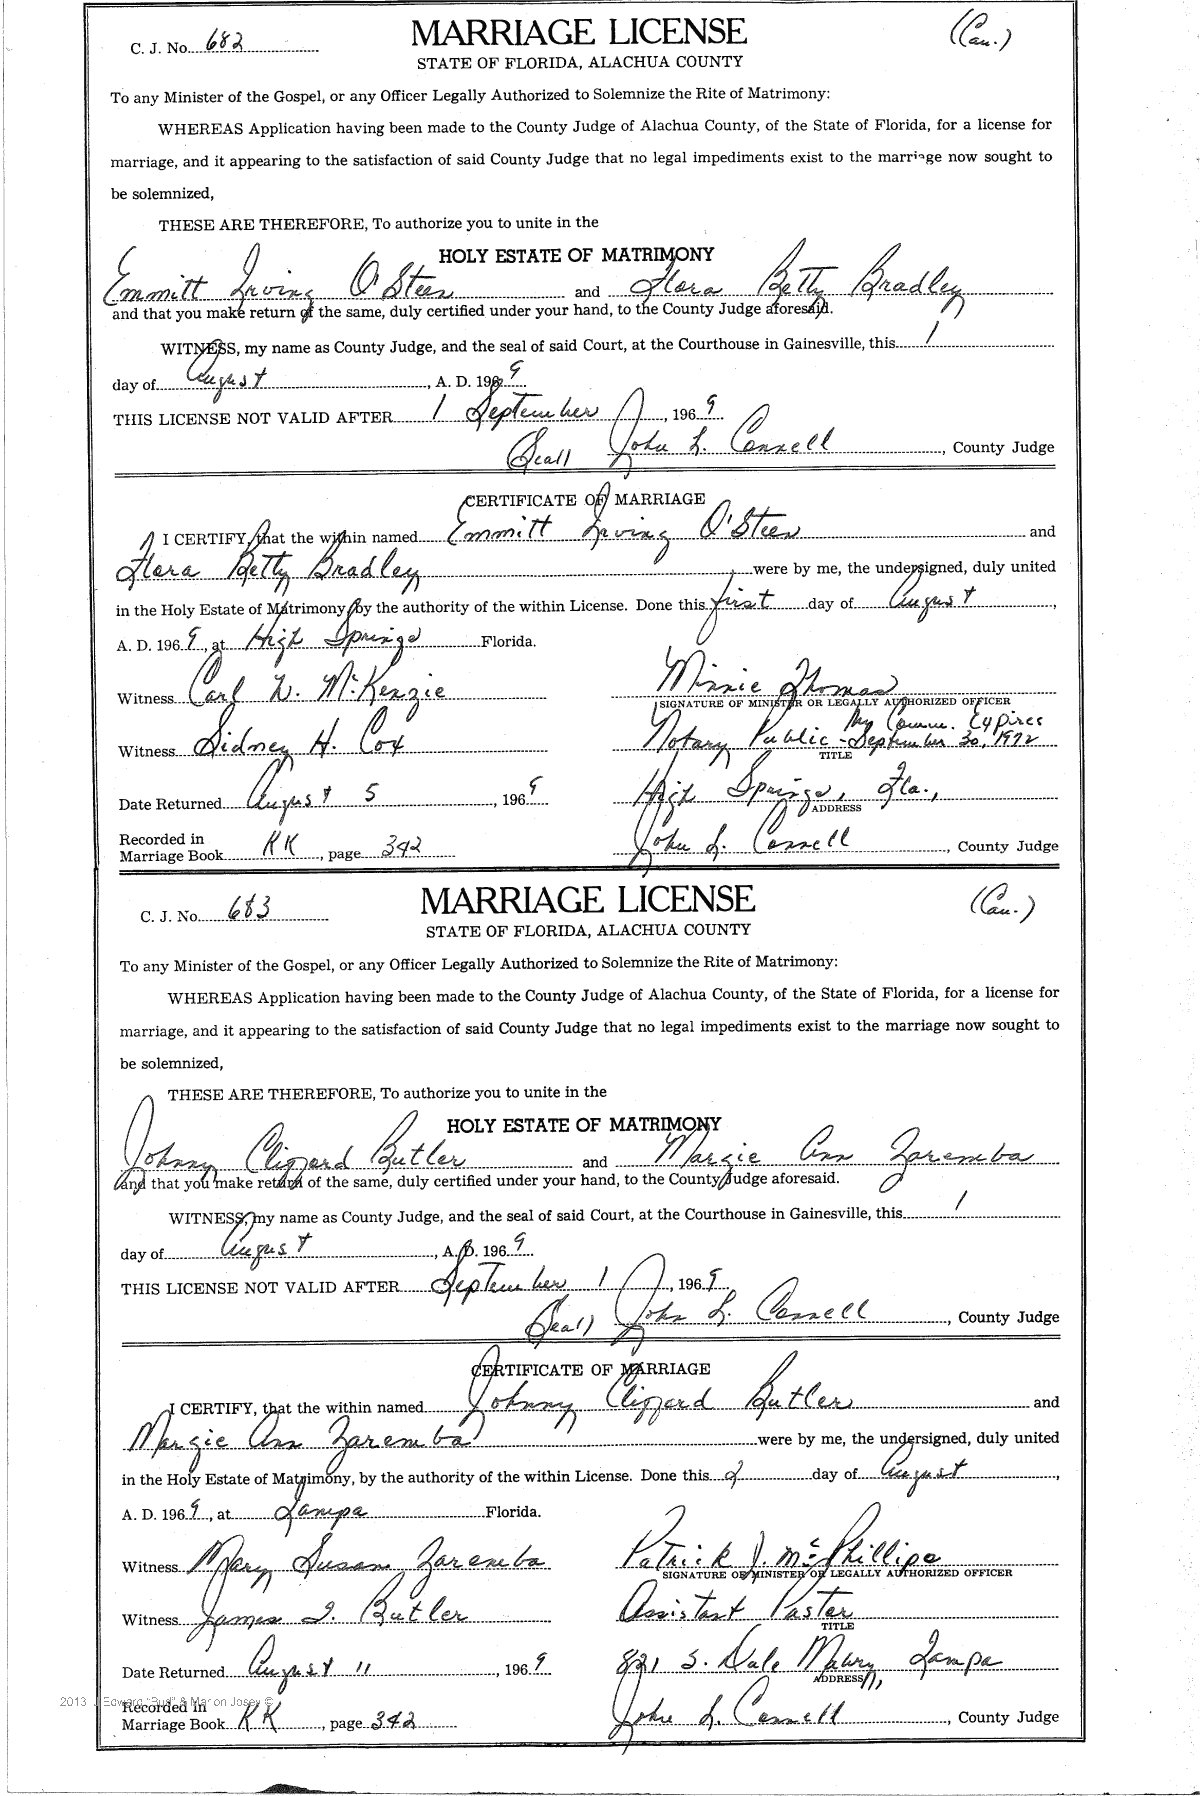 C. J. No. 682 MARRIAGE LICENSE (Cau.)
STATE OF FLORIDA, ALACHUA COUNTY
To any Minister of the Gospel, or any Officer Legally Authorized to Solemnize the Rite of Matrimony:
WHEREAS Application having been made to the County Judge of Alachua County, of the State of Florida, for a license for
marriage, and it appearing to the satisfaction of said County Judge that no legal impediments exist to the marriage now sought to
be solemnized,
THESE ARE THEREFORE, To authorize you to unite in the
HOLY ESTATE OF MATRIMONY
Emmitt Irving O'Steen and Flora Betty Bradley
and that you make return of the same, duly certified under your hand, to the County Judge aforesaid.
WITNESS, my name as County Judge, and the seal of said Court, at the Courthouse in Gainesville, this 1
day of August, A. D. 1969
THIS LICENSE NOT VALID AFTER 1 September, 1969
(Seal) John L. Connell, County Judge
CERTIFICATE OF MARRIAGE
I CERTIFY, that the within named Emmitt Irving O'Steen and
Flora Betty Bradley were by me, the undersigned, duly united
in the Holy Estate of Matrimony by the authority of the within License. Done this first day of August,
A. D. 1969, at High Springs Florida.
Witness Carl W. McKenzie Minnie Thomas
SIGNATURE OF MINISTER OR LEGALLY AUTHORIZED OFFICER
My Comm. Expires
Witness Sidney H. Cox Notary Public - September 30, 1972
TITLE
Date Returned August 5, 1969 High Springs, Fla.,
ADDRESS
Recorded in
Marriage Book KK, page 342 John L. Connell, County Judge
C. J. No. 683 MARRIAGE LICENSE (Cau.)
STATE OF FLORIDA, ALACHUA COUNTY
To any Minister of the Gospel, or any Officer Legally Authorized to Solemnize the Rite of Matrimony:
WHEREAS Application having been made to the County Judge of Alachua County, of the State of Florida, for a license for
marriage, and it appearing to the satisfaction of said County Judge that no legal impediments exist to the marriage now sought to
be solemnized,
THESE ARE THEREFORE, To authorize you to unite in the
HOLY ESTATE OF MATRIMONY
Johnny Clifford Butler and Margie Ann Zaremba
and that you make return of the same, duly certified under your hand, to the County Judge aforesaid.
WITNESS, my name as County Judge, and the seal of said Court, at the Courthouse in Gainesville, this 1
day of August, A. D. 1969
THIS LICENSE NOT VALID AFTER September 1, 1969
(Seal) John L. Connell, County Judge
CERTIFICATE OF MARRIAGE
I CERTIFY, that the within named Johnny Clifford Butler and
Margie Ann Zaremba were by me, the undersigned, duly united
in the Holy Estate of Matrimony, by the authority of the within License. Done this 2 day of August,
A. D. 1969, at Tampa Florida.
Witness Mary Susan Zaremba Patrick J. McPhillips
SIGNATURE OF MINISTER OR LEGALLY AUTHORIZED OFFICER
Witness James I. Butler Assistant Pastor
TITLE
Date Returned August 11, 1969 821 S. Dale Mabry, Tampa
ADDRESS
2013 J Edward "Bud" & Marion Josey ©
Recorded in
Marriage Book KK, page 342 John L. Connell, County Judge